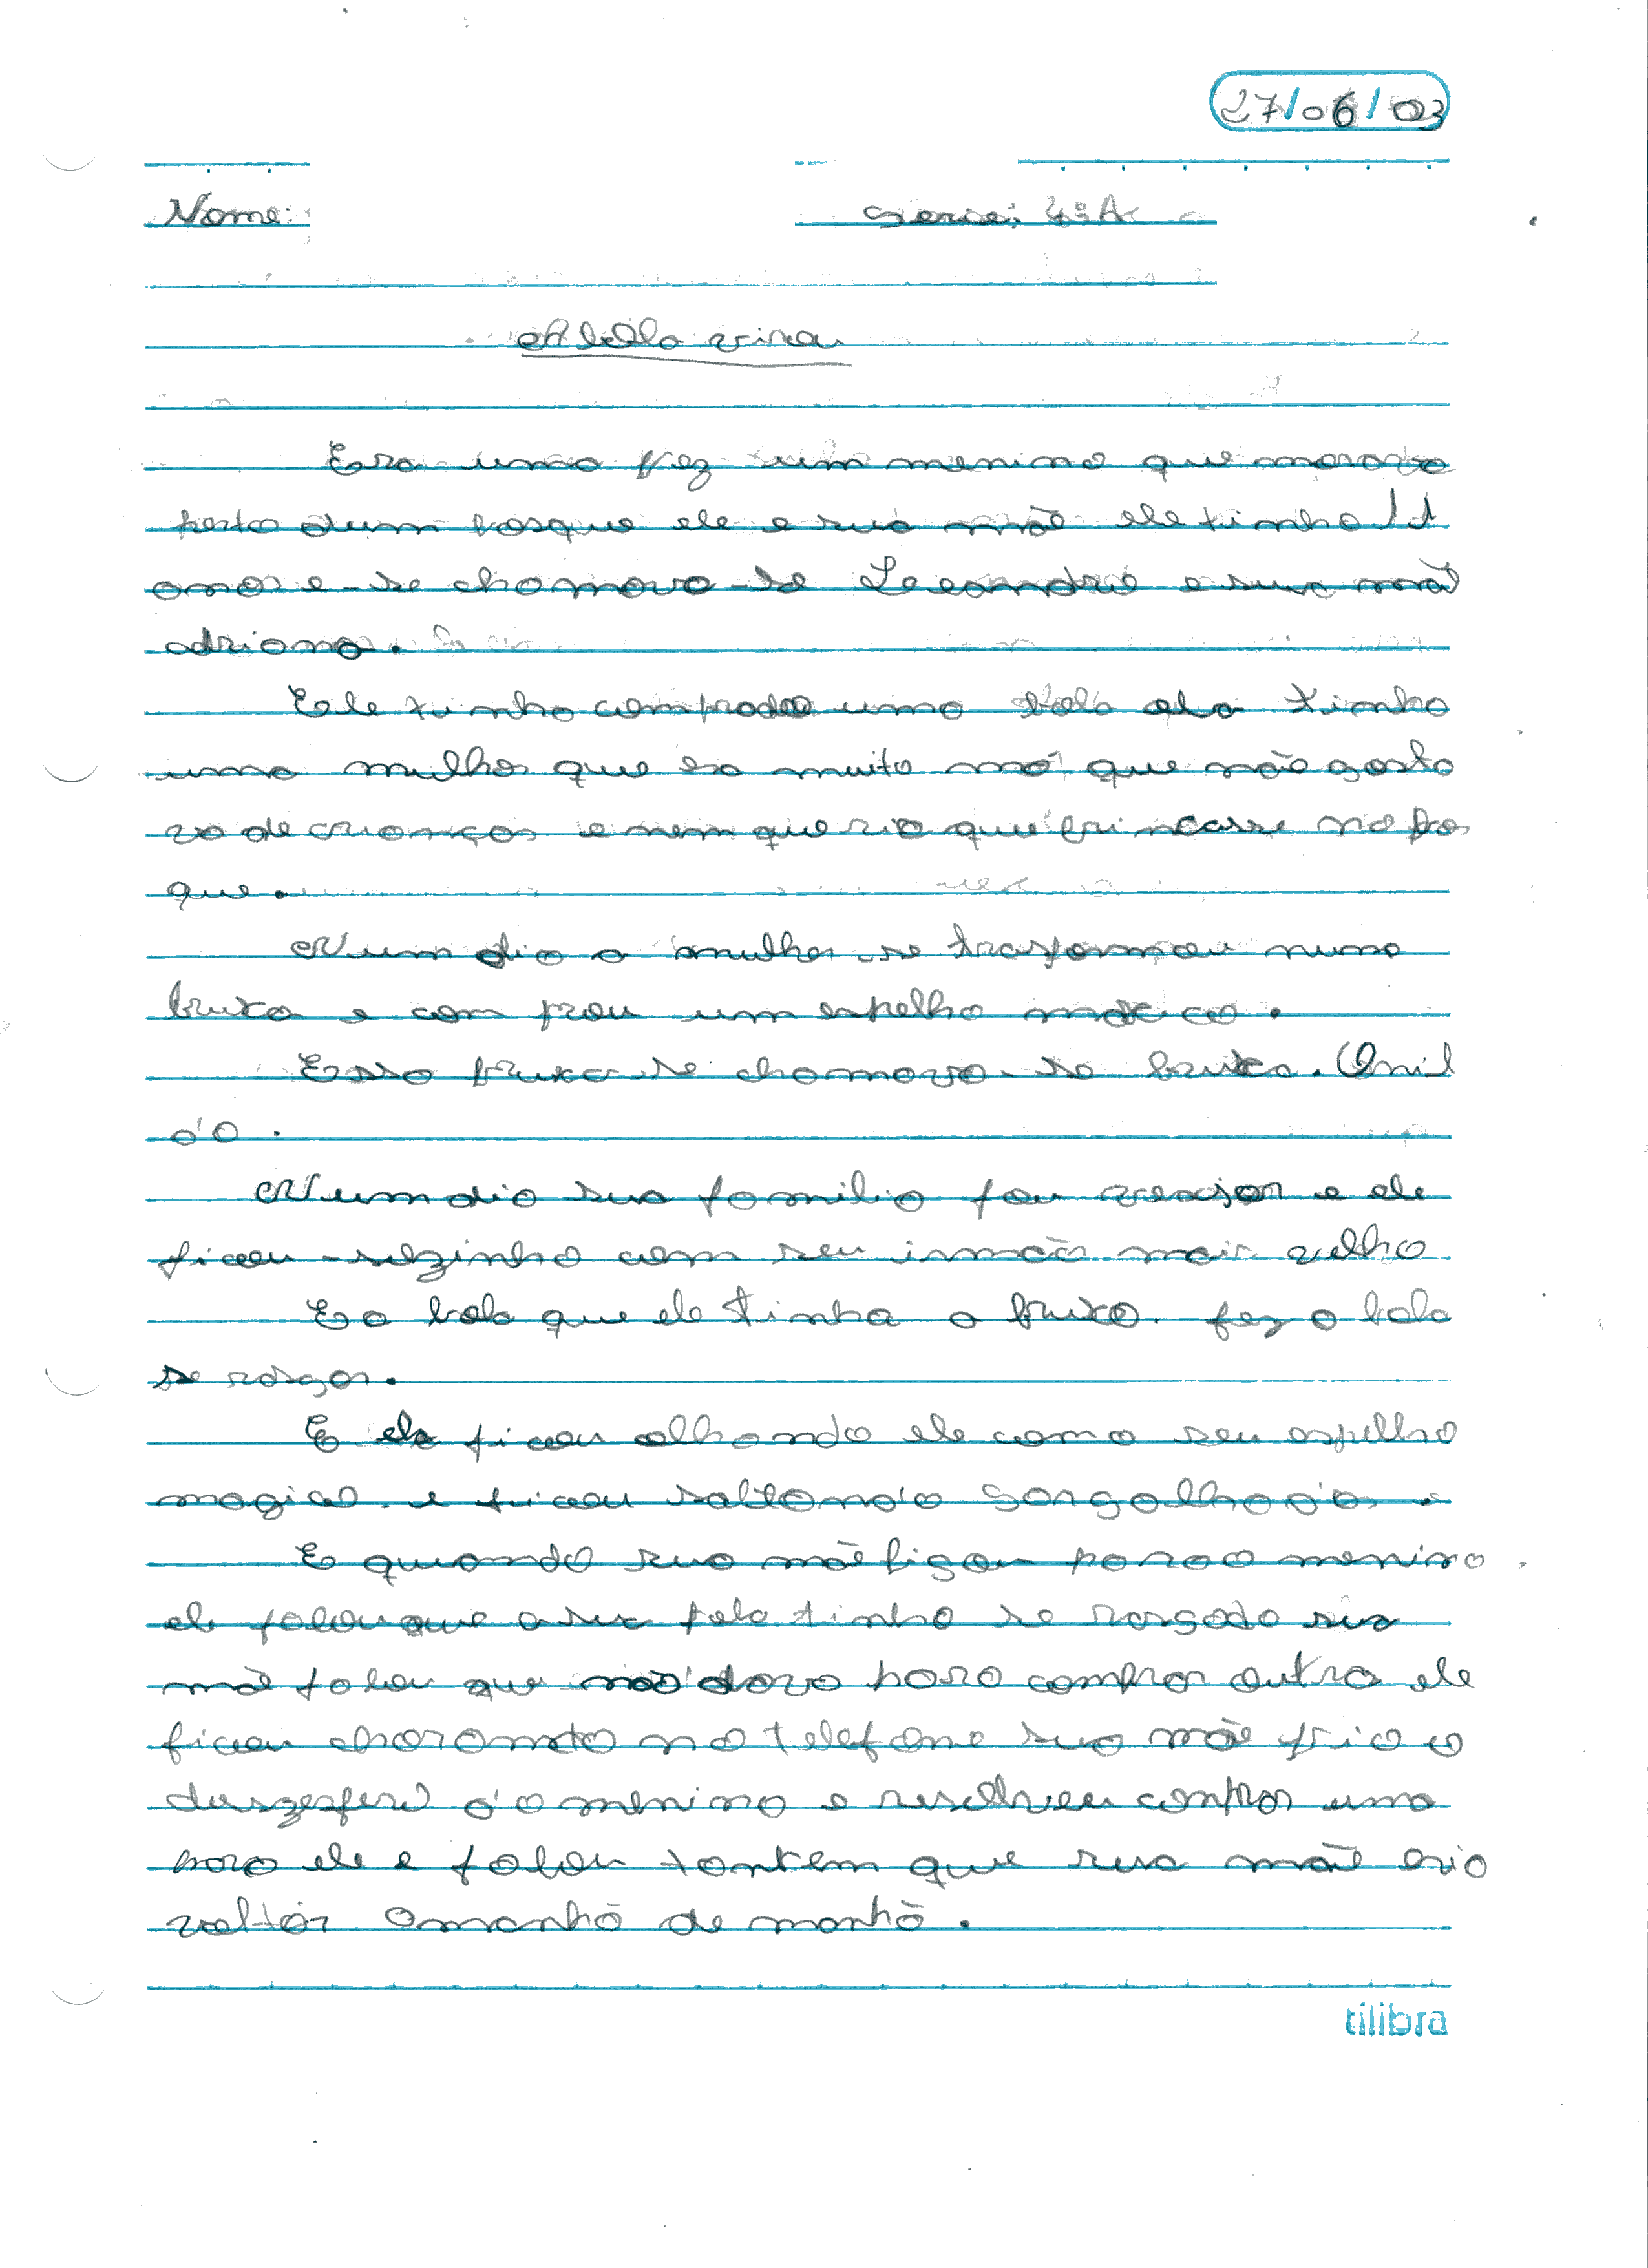 27/06/03
Nome: Serie: 4ªA
A bola viva
Era uma fez um menino que morava
perto dum bosque ele e sua mãe ele tinha 11
anos e se chamava-se Leeandro e sua mãe
adriana.
Ele tinha comprado uma bola ela tinha
uma mulher que era muito má que não gosta
va de crianças e nem queria que brincasse no bos
que.
Num dia a mulher se trasformou numa
bruxa e com prou um espelho magico.
Essa bruxa se chamava-se bruxa. Onil
da.
Num dia sua familia fou viajar e ele
ficou sozinho com seu irmão mais velho
E a bola que ele tinha a bruxa. fez a bola
se rasgar.
E ela ficou olhando ele como seu espelho
magico. e ficou soltando gargalhadas.
E quando sua mãe ligou para o menino
ele falou que a sua bola tinha se rasgado sua
mãe falou que não dava para comprar outra ele
ficou choramdo no telefone sua mãe fico o
o menino e resolveu compror uma
para ele e falou tantem que sua mãe avio
voltar amanhã de manhã.
tilibra